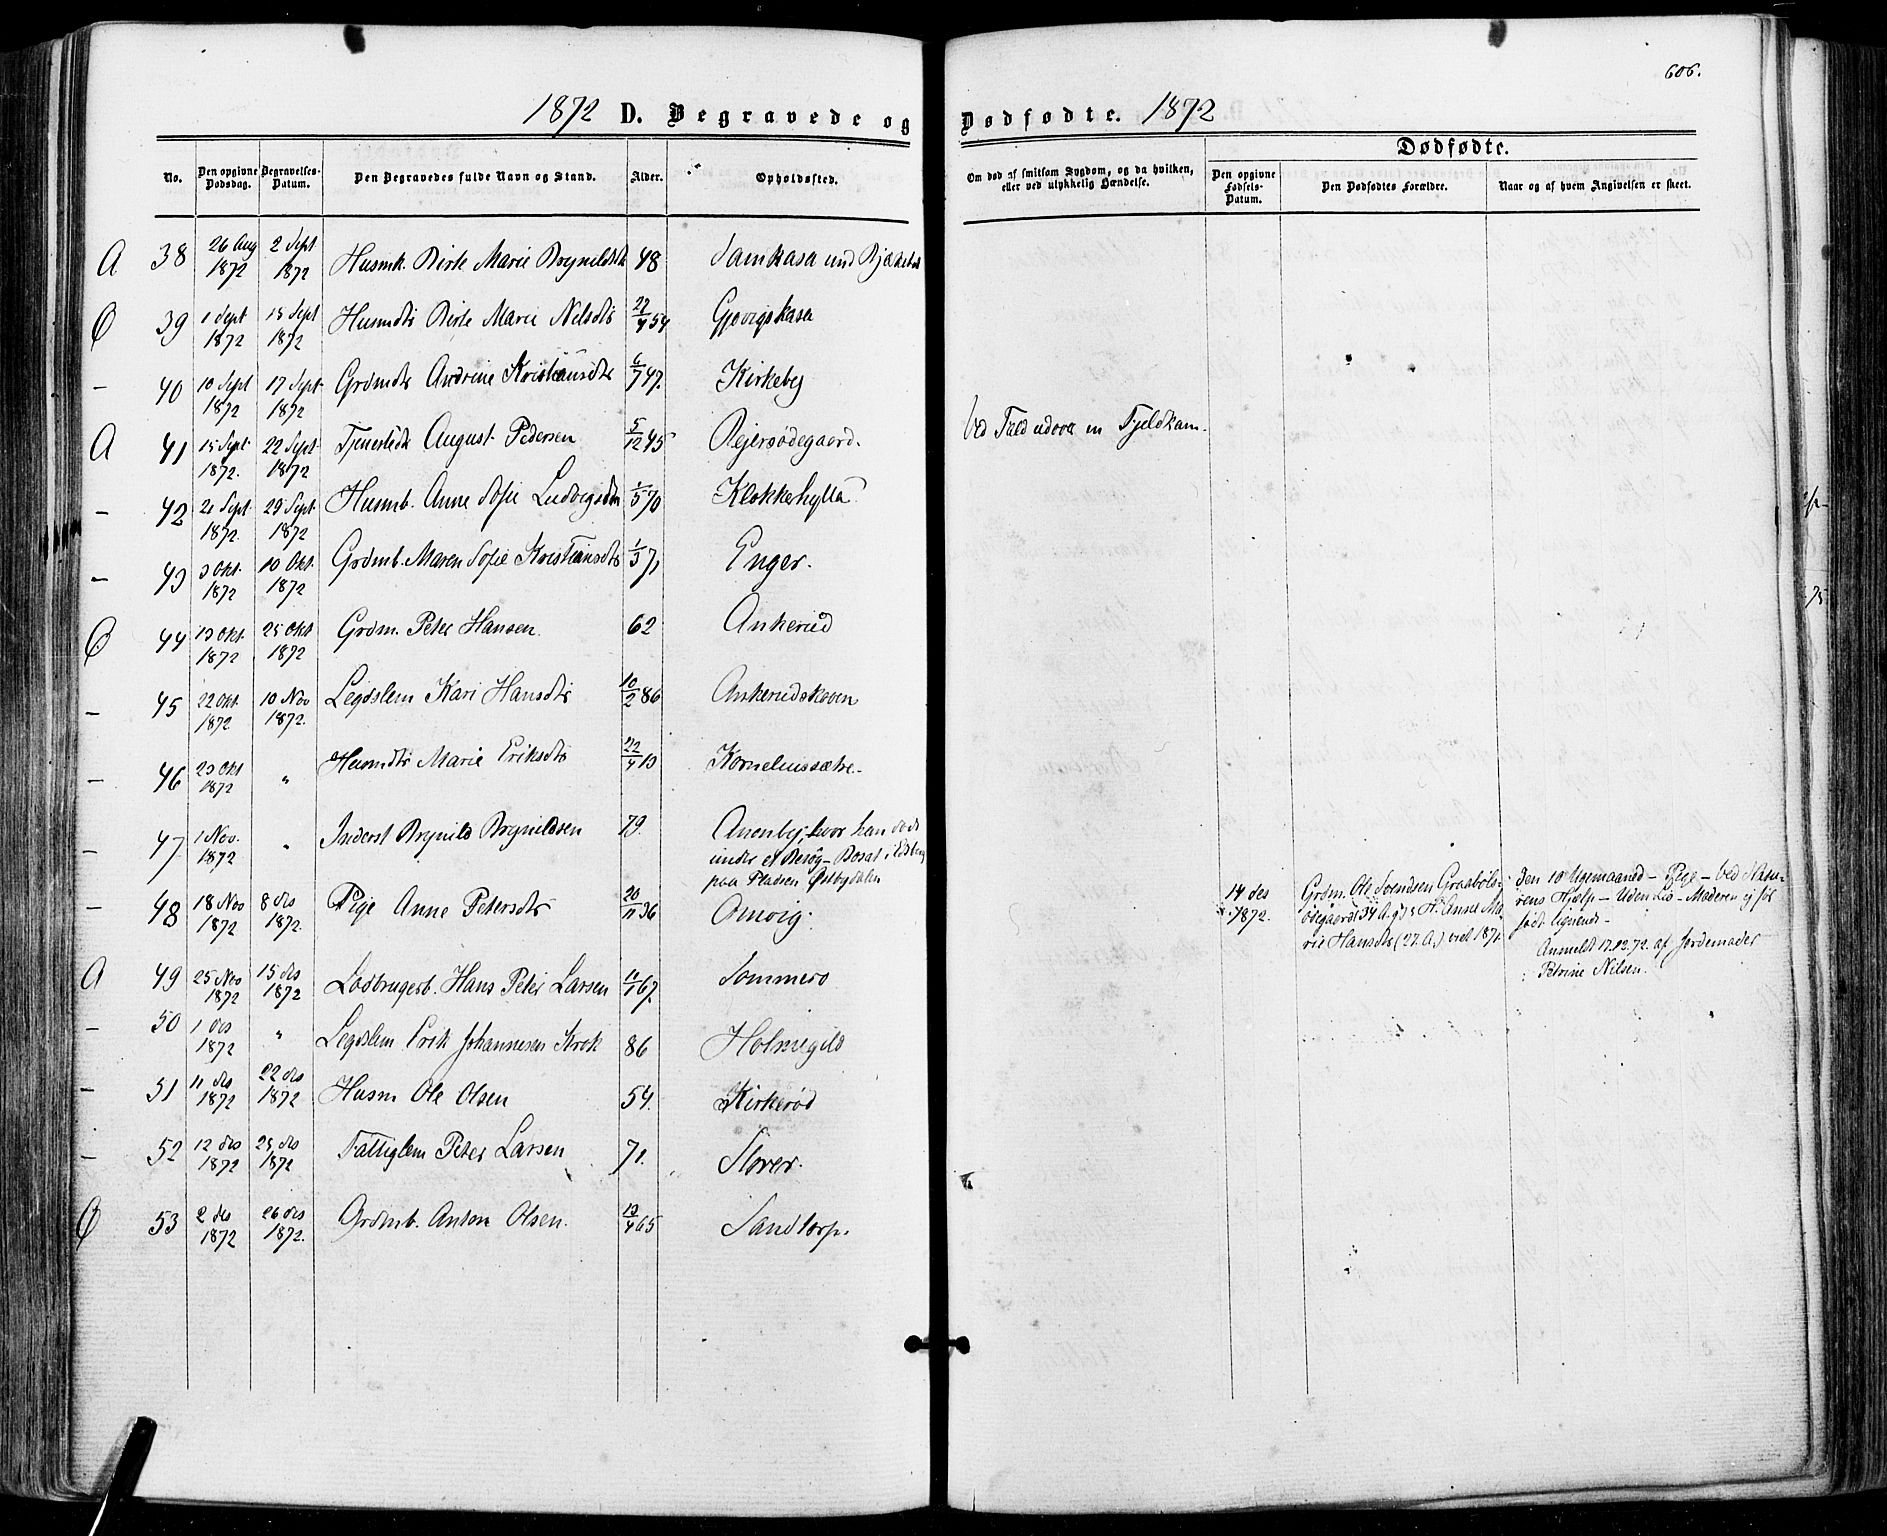 606.
1872 D. Begravede og Dødfødte. 1872
No. Den opgivne Dødsdag. Begravelses-Datum. Den Begravedes fulde Navn og Stand. Alder. Opholdssted.
Om død af smitsom Sygdom, og da hvilken, eller ved ulykkelig Hændelse.
Dødfødte.
Den opgivne Fødsels-Datum. Den Dødfødtes Forældre. Naar og af hvem Angivelsen er skeet.
A 38 26 Aug 1872 2 Sept 1872 Husmk. Birte Marie Brynildsdtr 48
39 1 Sept 1872 15 Sept 1872 Husmdtr Birte Marie Nilsdtr 54 Gjøvigskasa
- 40 10 Sept 1872 17 Sept 1872 Grdmdtr Andrine Kristiansdtr 6/7 47. Kirkeby
A 41 15 Sept 1872. 22 Sept 1872 August Pedersen 5/12 45 Rejersødegaard. Ved Fald udover en Fjeldkam.
- 42 21 Sept 1872. 29 Sept 1872 Husmb. Anne Sofie Ludvigsdtr 1/5 70 Klokkehylla
- 43 3 Okt. 1872 10 Okt. 1872 Grdmb. Maren Sofie Kristiansdtr 1/3 71 Enger.
44 13 Okt. 1872 25 Okt 1872 Grdm. Peter Hansen. 62 Ankerud
- 45 22 Okt. 1872 10 Nov 1872. Legdslem Kari Hansdtr 10/2 86 Ankerudskoven
- 46 23 Okt 1872 " Husmdtr Marie Eriksdtr 22/4 Korneliussætre.
- 47 1 Nov. 1872 " Inderst Brynild Brynildsen 79. hvor han døde
under et Besøg - Bosat i Eidsberg
paa Pladsen Østbydalen
- 48 18 Nov 1872 8 des 1872. Pige Anne Petersdtr 20/11 36
14 des 1872. Grdm. Ole Svendsen Graabøls-
ødegaard 34 A. g. 75 H. Anne Ma-
rie Hansdtr (27. A.) viet 1871.
den 10 Ugemaaned - Pige - ved Natu-
rens Hjælp - Uden Liv - Moderen ej før
født lignende -
Anmeldt 17.12.72. af Jordemoder
Petrine Nilsen.
A 49 25 Nov 1872 15 des 1872 Hans Peter Larsen 67. Sommero
- 50 1 des 1872 " Legdslem Erik Johannesen Krok 86 Holmegild
- 51 11 des 1872 22 des 1872 Husm Ole Olsen 54. Kirkerød
- 52 12 des 1872 25 des 1872 Fattiglem Peter Larsen 71. Storer.
53 2 des 1872 26 des 1872. Grdmb. Anton Olsen. 13/4 65 Sandtorp.